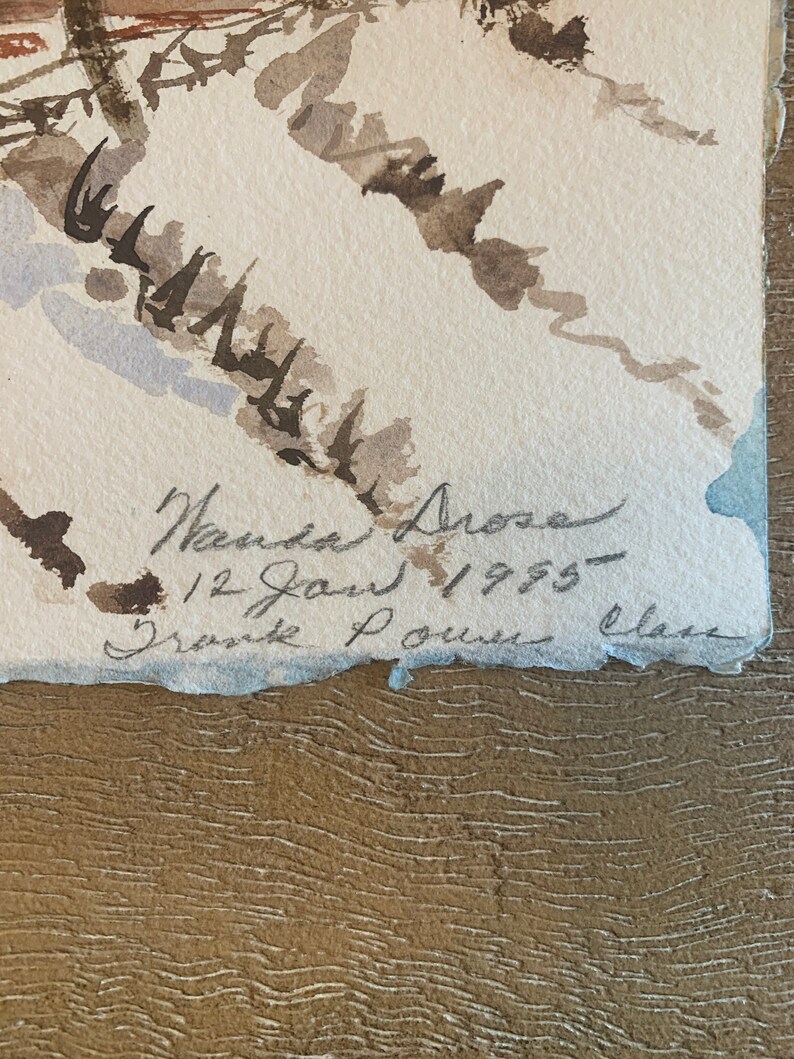 Wanda Drose
12 Jan 1995
Frank Power Class